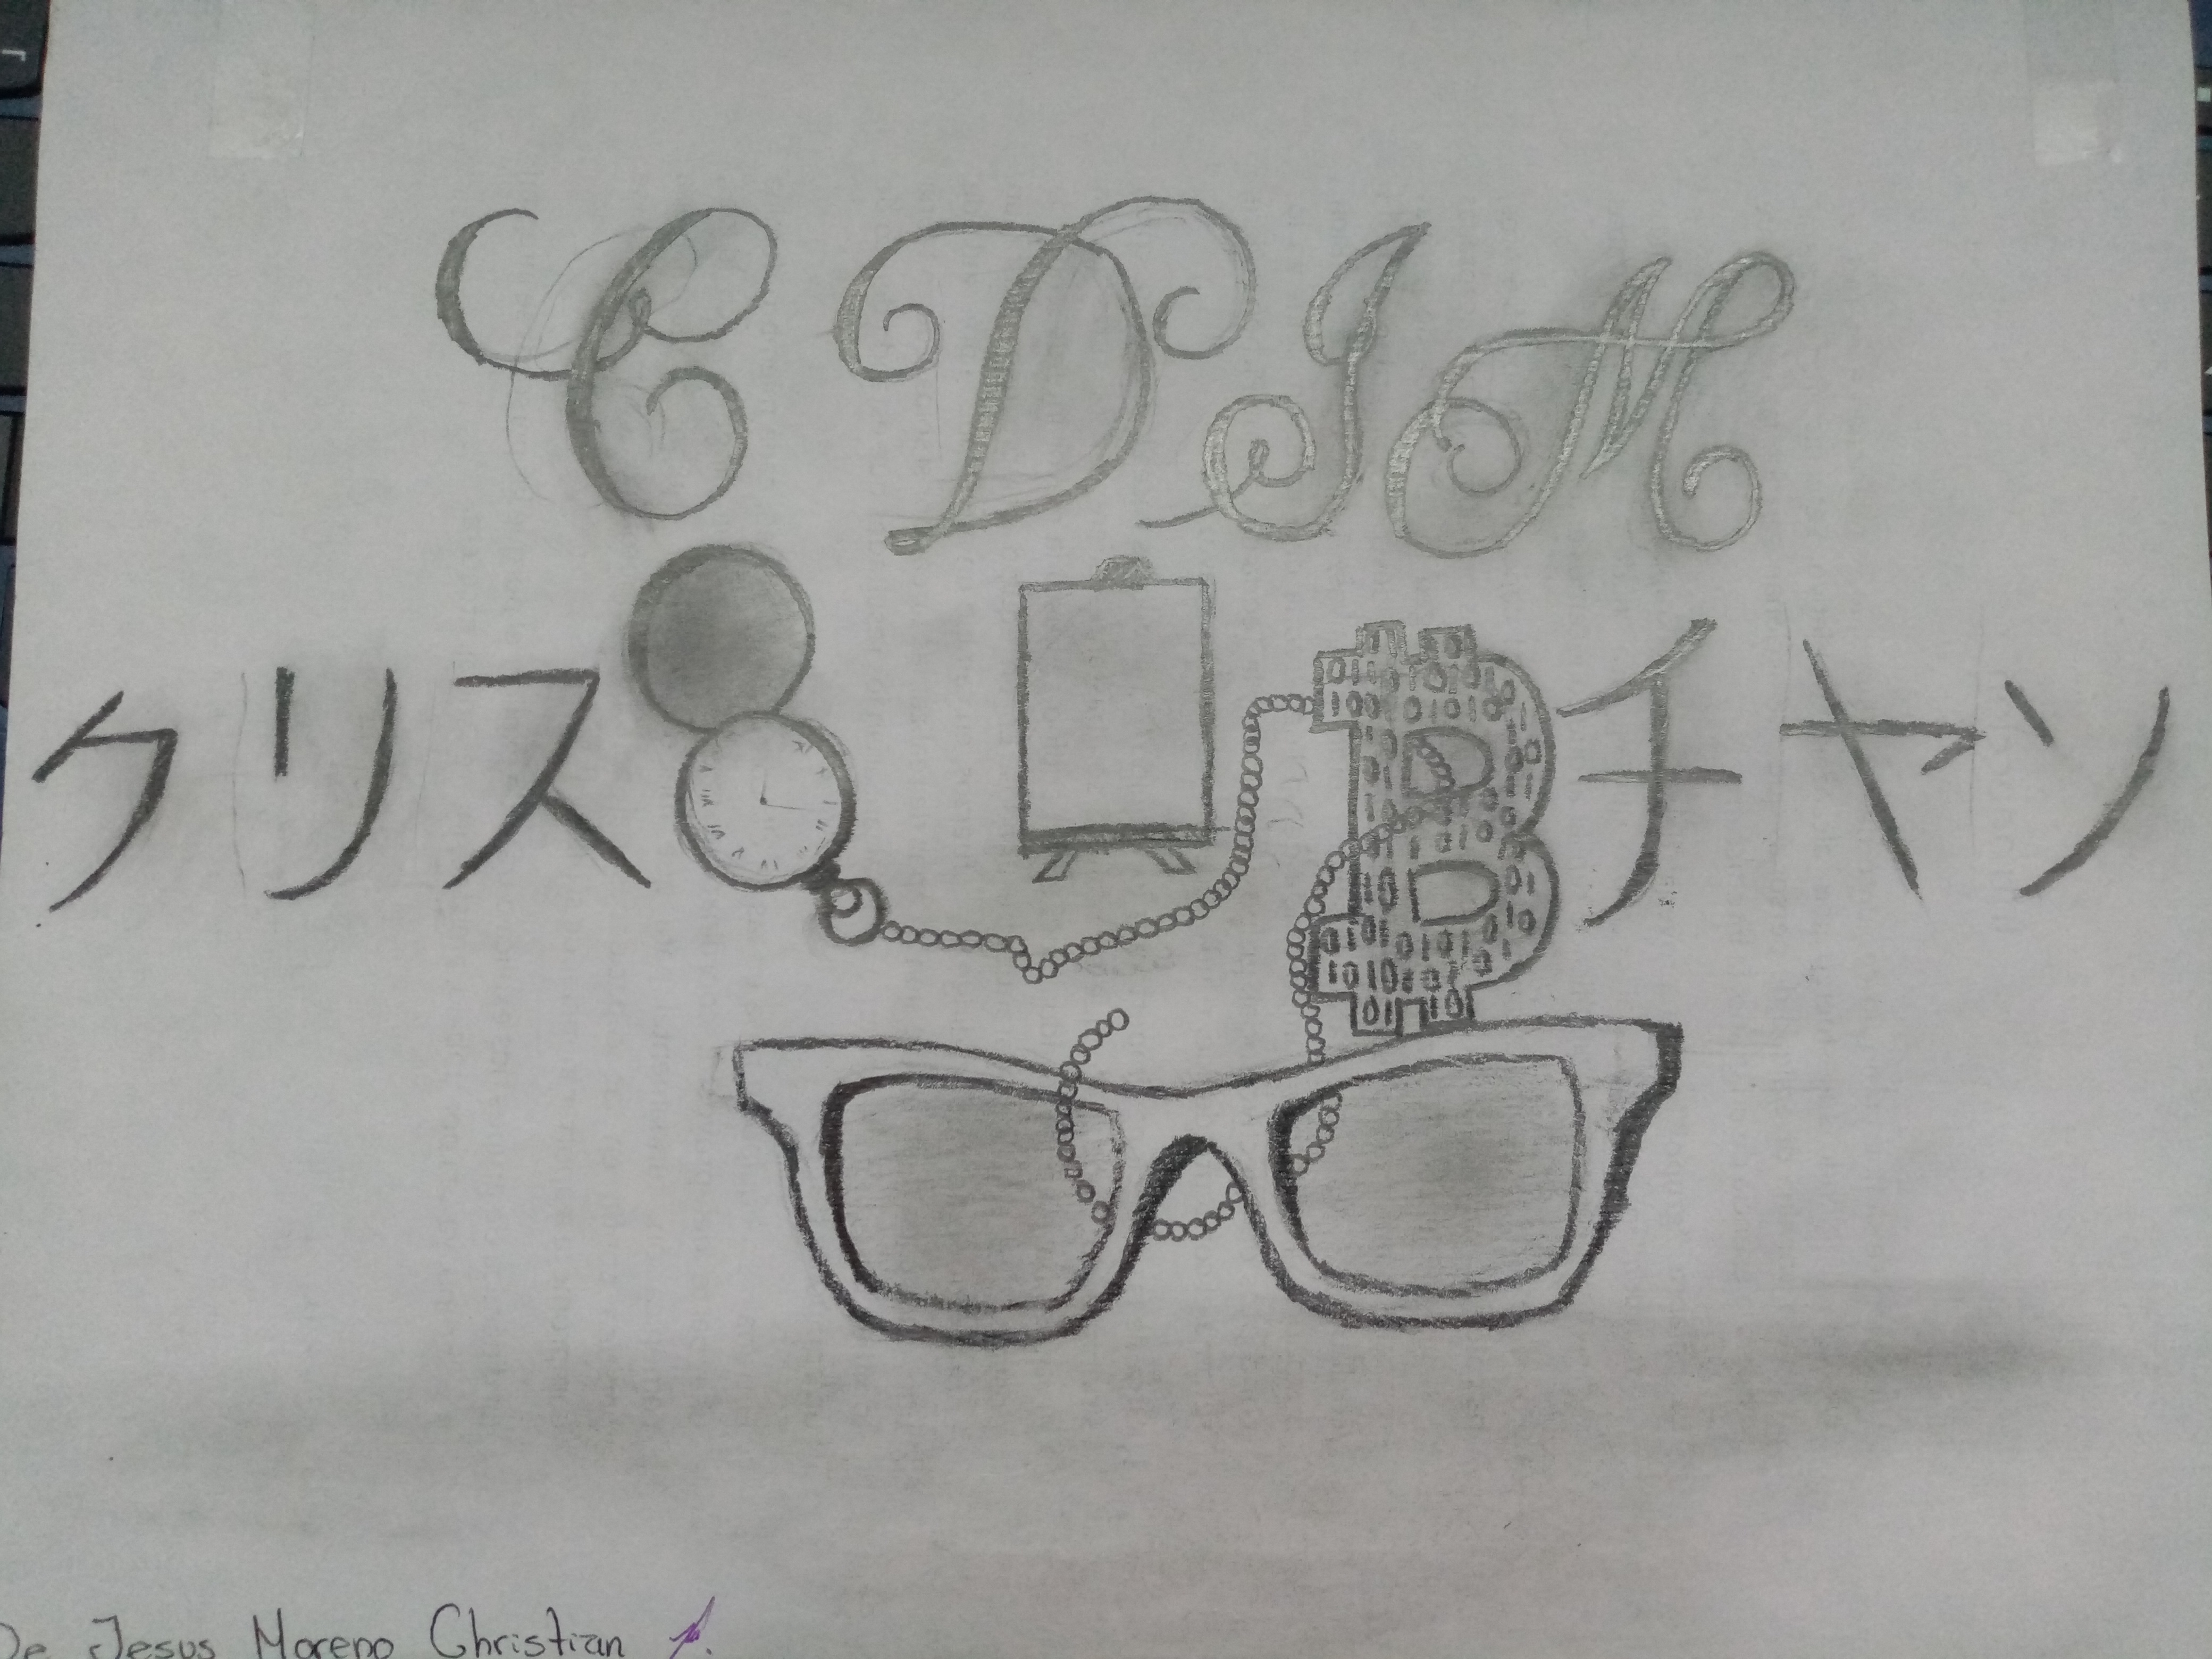 C D J M
クリス チャン
De Jesus Moreno Christian